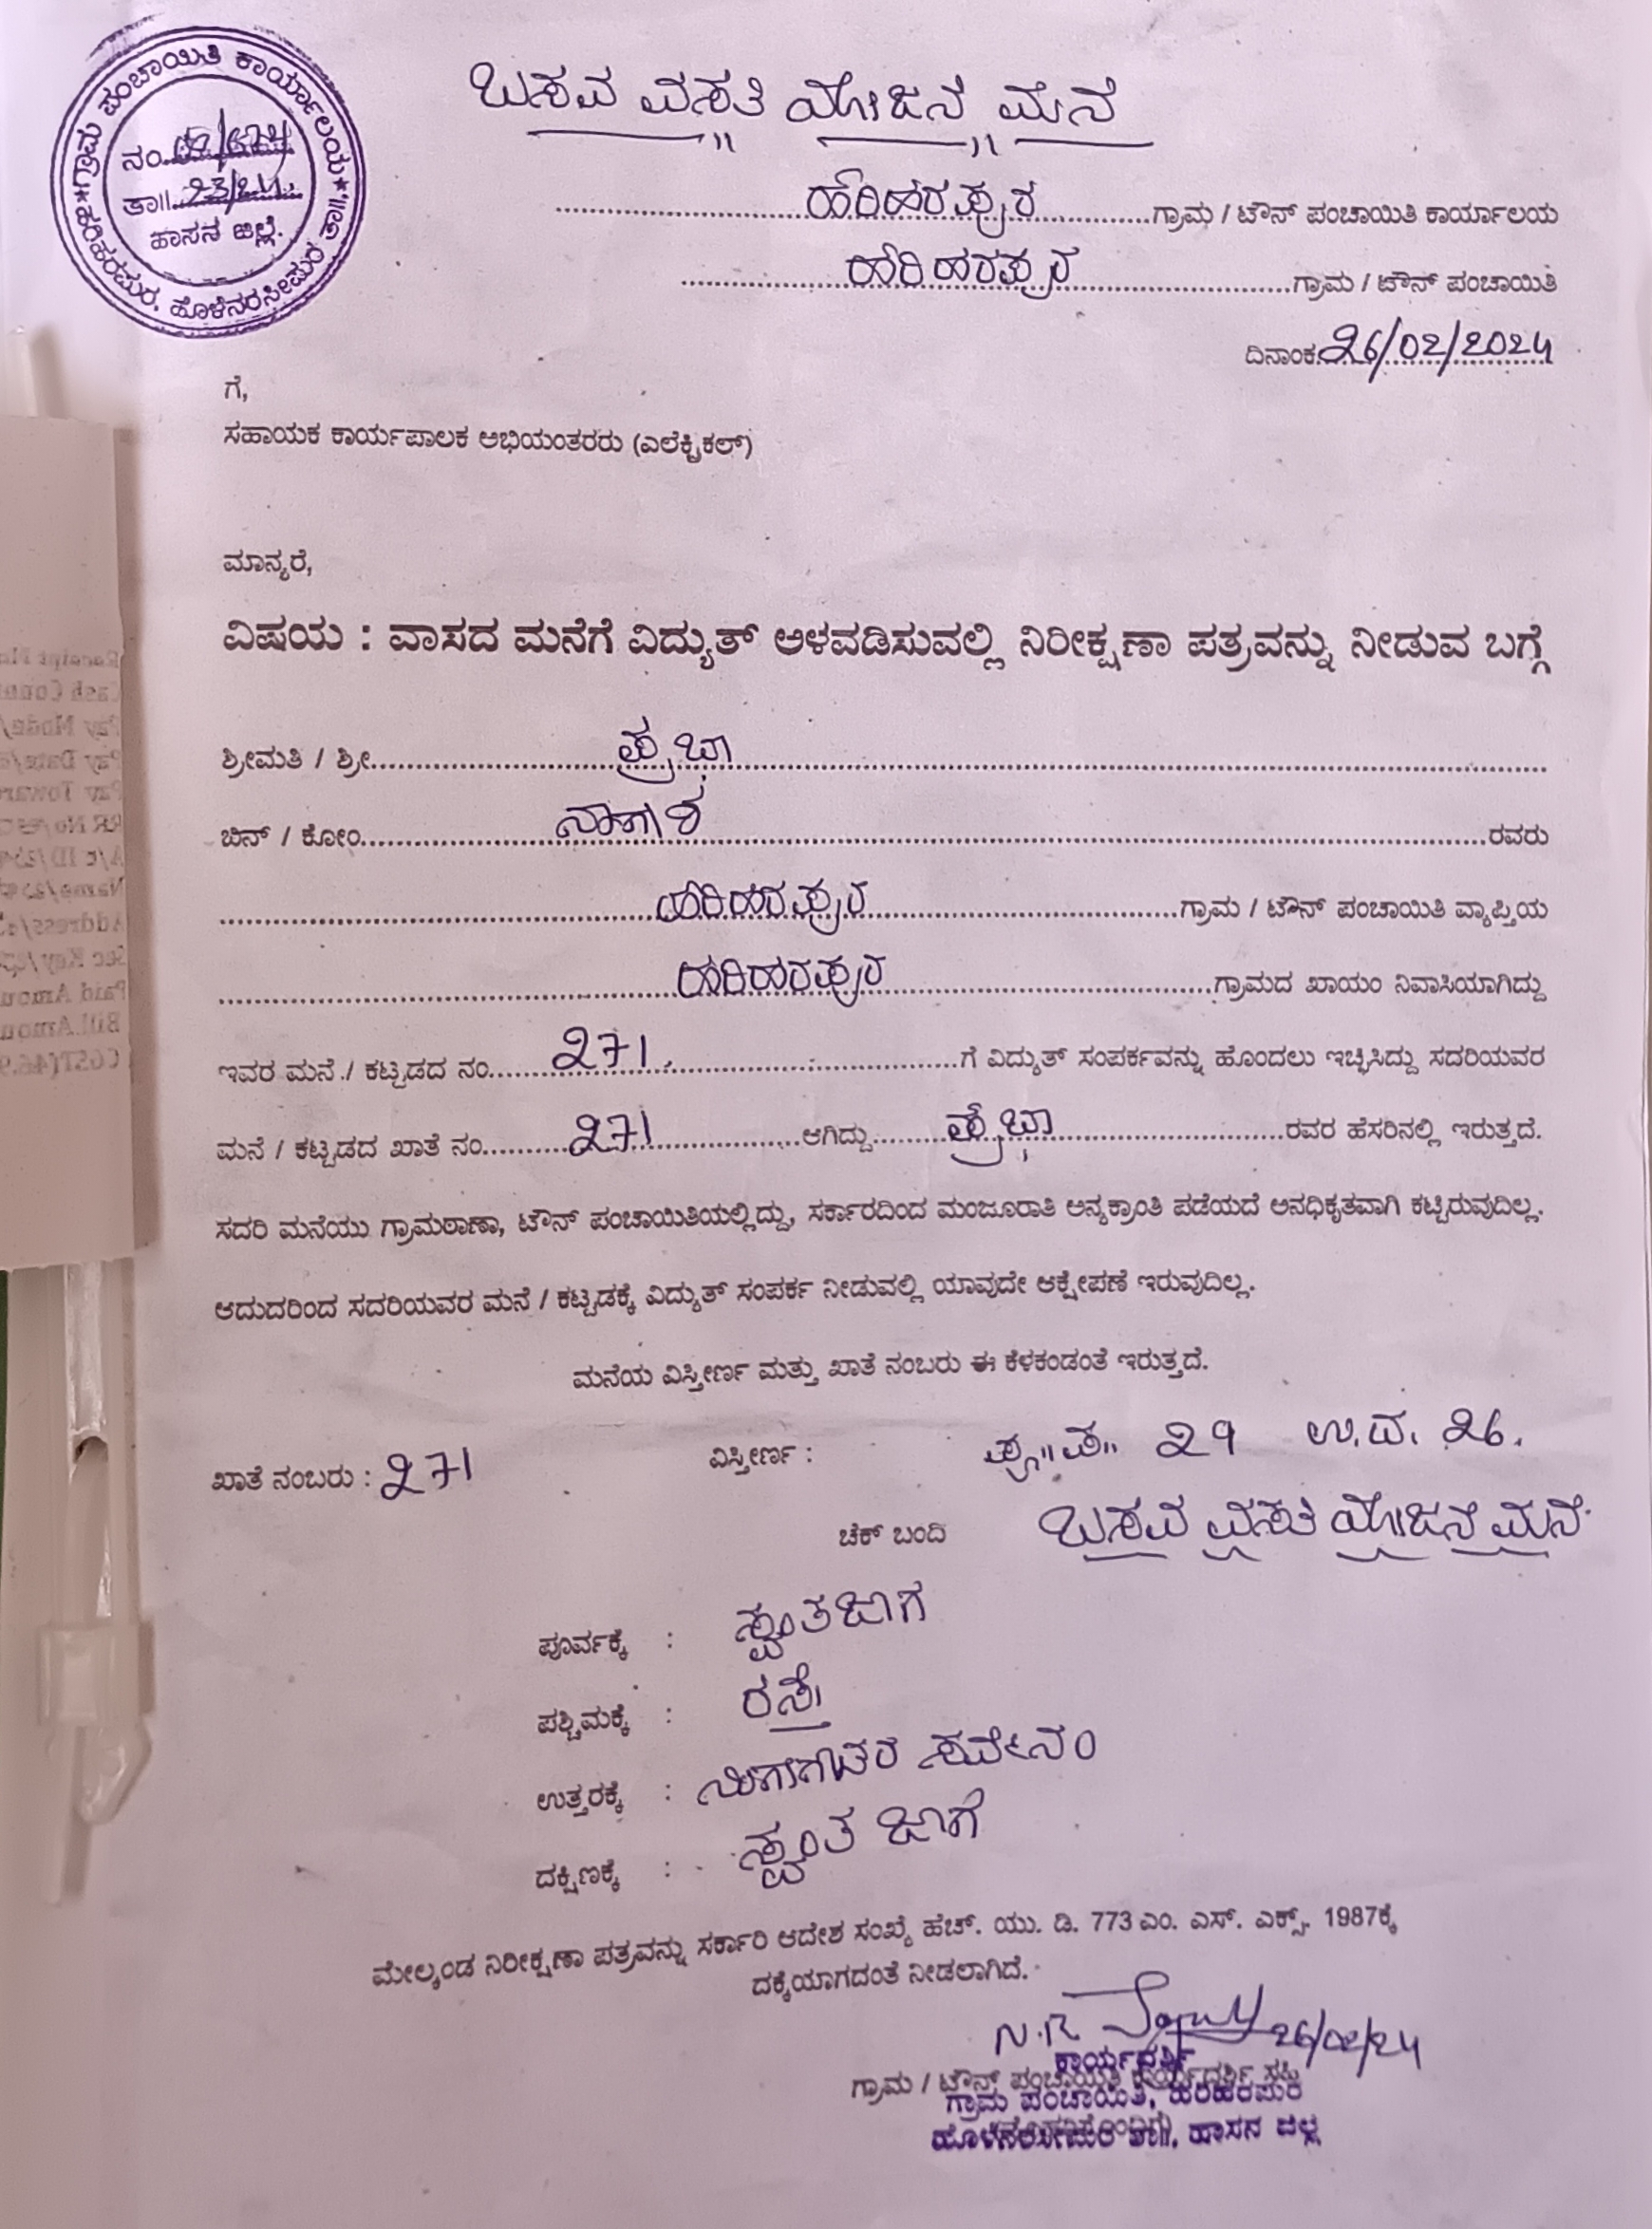 ಗ್ರಾಮ ಪಂಚಾಯಿತಿ ಕಾರ್ಯಾಲಯ
ಹರಿಹರಪುರ, ಹೊಳೆನರಸೀಪುರ ತಾ॥
ನಂ.
ತಾ॥
ಹಾಸನ ಜಿಲ್ಲೆ.
ಬಸವ ವಸತಿ ಯೋಜನೆ ಮನೆ
ಹರಿಹರಪುರ ಗ್ರಾಮ / ಟೌನ್ ಪಂಚಾಯಿತಿ ಕಾರ್ಯಾಲಯ
ಹರಿಹರಪುರ ಗ್ರಾಮ / ಟೌನ್ ಪಂಚಾಯಿತಿ
ದಿನಾಂಕ 26/02/2024
ಗೆ,
ಸಹಾಯಕ ಕಾರ್ಯಪಾಲಕ ಅಭಿಯಂತರರು (ಎಲೆಕ್ಟ್ರಿಕಲ್)
ಮಾನ್ಯರೆ,
ವಿಷಯ : ವಾಸದ ಮನೆಗೆ ವಿದ್ಯುತ್ ಅಳವಡಿಸುವಲ್ಲಿ ನಿರೀಕ್ಷಣಾ ಪತ್ರವನ್ನು ನೀಡುವ ಬಗ್ಗೆ
ಶ್ರೀಮತಿ / ಶ್ರೀ ಪ್ರಭಾ
ಬಿನ್ / ಕೋಂ ರವರು
ಹರಿಹರಪುರ ಗ್ರಾಮ / ಟೌನ್ ಪಂಚಾಯಿತಿ ವ್ಯಾಪ್ತಿಯ
ಹರಿಹರಪುರ ಗ್ರಾಮದ ಖಾಯಂ ನಿವಾಸಿಯಾಗಿದ್ದು
ಇವರ ಮನೆ / ಕಟ್ಟಡದ ನಂ 271 ಗೆ ವಿದ್ಯುತ್ ಸಂಪರ್ಕವನ್ನು ಹೊಂದಲು ಇಚ್ಛಿಸಿದ್ದು ಸದರಿಯವರ
ಮನೆ / ಕಟ್ಟಡದ ಖಾತೆ ನಂ 271 ಆಗಿದ್ದು ಪ್ರಭಾ ರವರ ಹೆಸರಿನಲ್ಲಿ ಇರುತ್ತದೆ.
ಸದರಿ ಮನೆಯು ಗ್ರಾಮಠಾಣಾ, ಟೌನ್ ಪಂಚಾಯಿತಿಯಲ್ಲಿದ್ದು, ಸರ್ಕಾರದಿಂದ ಮಂಜೂರಾತಿ ಅನ್ಯಕ್ರಾಂತಿ ಪಡೆಯದೆ ಅನಧಿಕೃತವಾಗಿ ಕಟ್ಟಿರುವುದಿಲ್ಲ.
ಆದುದರಿಂದ ಸದರಿಯವರ ಮನೆ / ಕಟ್ಟಡಕ್ಕೆ ವಿದ್ಯುತ್ ಸಂಪರ್ಕ ನೀಡುವಲ್ಲಿ ಯಾವುದೇ ಆಕ್ಷೇಪಣೆ ಇರುವುದಿಲ್ಲ.
ಮನೆಯ ವಿಸ್ತೀರ್ಣ ಮತ್ತು ಖಾತೆ ನಂಬರು ಈ ಕೆಳಕಂಡಂತೆ ಇರುತ್ತದೆ.
ಖಾತೆ ನಂಬರು : 271 ವಿಸ್ತೀರ್ಣ : ಪೂ॥ಪ॥ 29 ಉ.ದ. 26.
ಚೆಕ್ ಬಂದಿ ಬಸವ ವಸತಿ ಯೋಜನೆ ಮನೆ
ಪೂರ್ವಕ್ಕೆ : ಸ್ವಂತ ಜಾಗ
ಪಶ್ಚಿಮಕ್ಕೆ : ರಸ್ತೆ
ಉತ್ತರಕ್ಕೆ : ಸರ್ವೆ ನಂ
ದಕ್ಷಿಣಕ್ಕೆ : ಸ್ವಂತ ಜಾಗೆ
ಮೇಲ್ಕಂಡ ನಿರೀಕ್ಷಣಾ ಪತ್ರವನ್ನು ಸರ್ಕಾರಿ ಆದೇಶ ಸಂಖ್ಯೆ ಹೆಚ್. ಯು. ಡಿ. 773 ಎಂ. ಎಸ್. ಎಕ್ಸ್. 1987ಕ್ಕೆ
ದಕ್ಕೆಯಾಗದಂತೆ ನೀಡಲಾಗಿದೆ.
26/02/24
ಕಾರ್ಯದರ್ಶಿ
ಗ್ರಾಮ / ಟೌನ್ ಪಂಚಾಯಿತಿ ಕಾರ್ಯದರ್ಶಿ ಸಹಿ
ಗ್ರಾಮ ಪಂಚಾಯಿತಿ, ಹರಿಹರಪುರ
ಹೊಳೆನರಸೀಪುರ ತಾ॥, ಹಾಸನ ಜಿಲ್ಲೆ